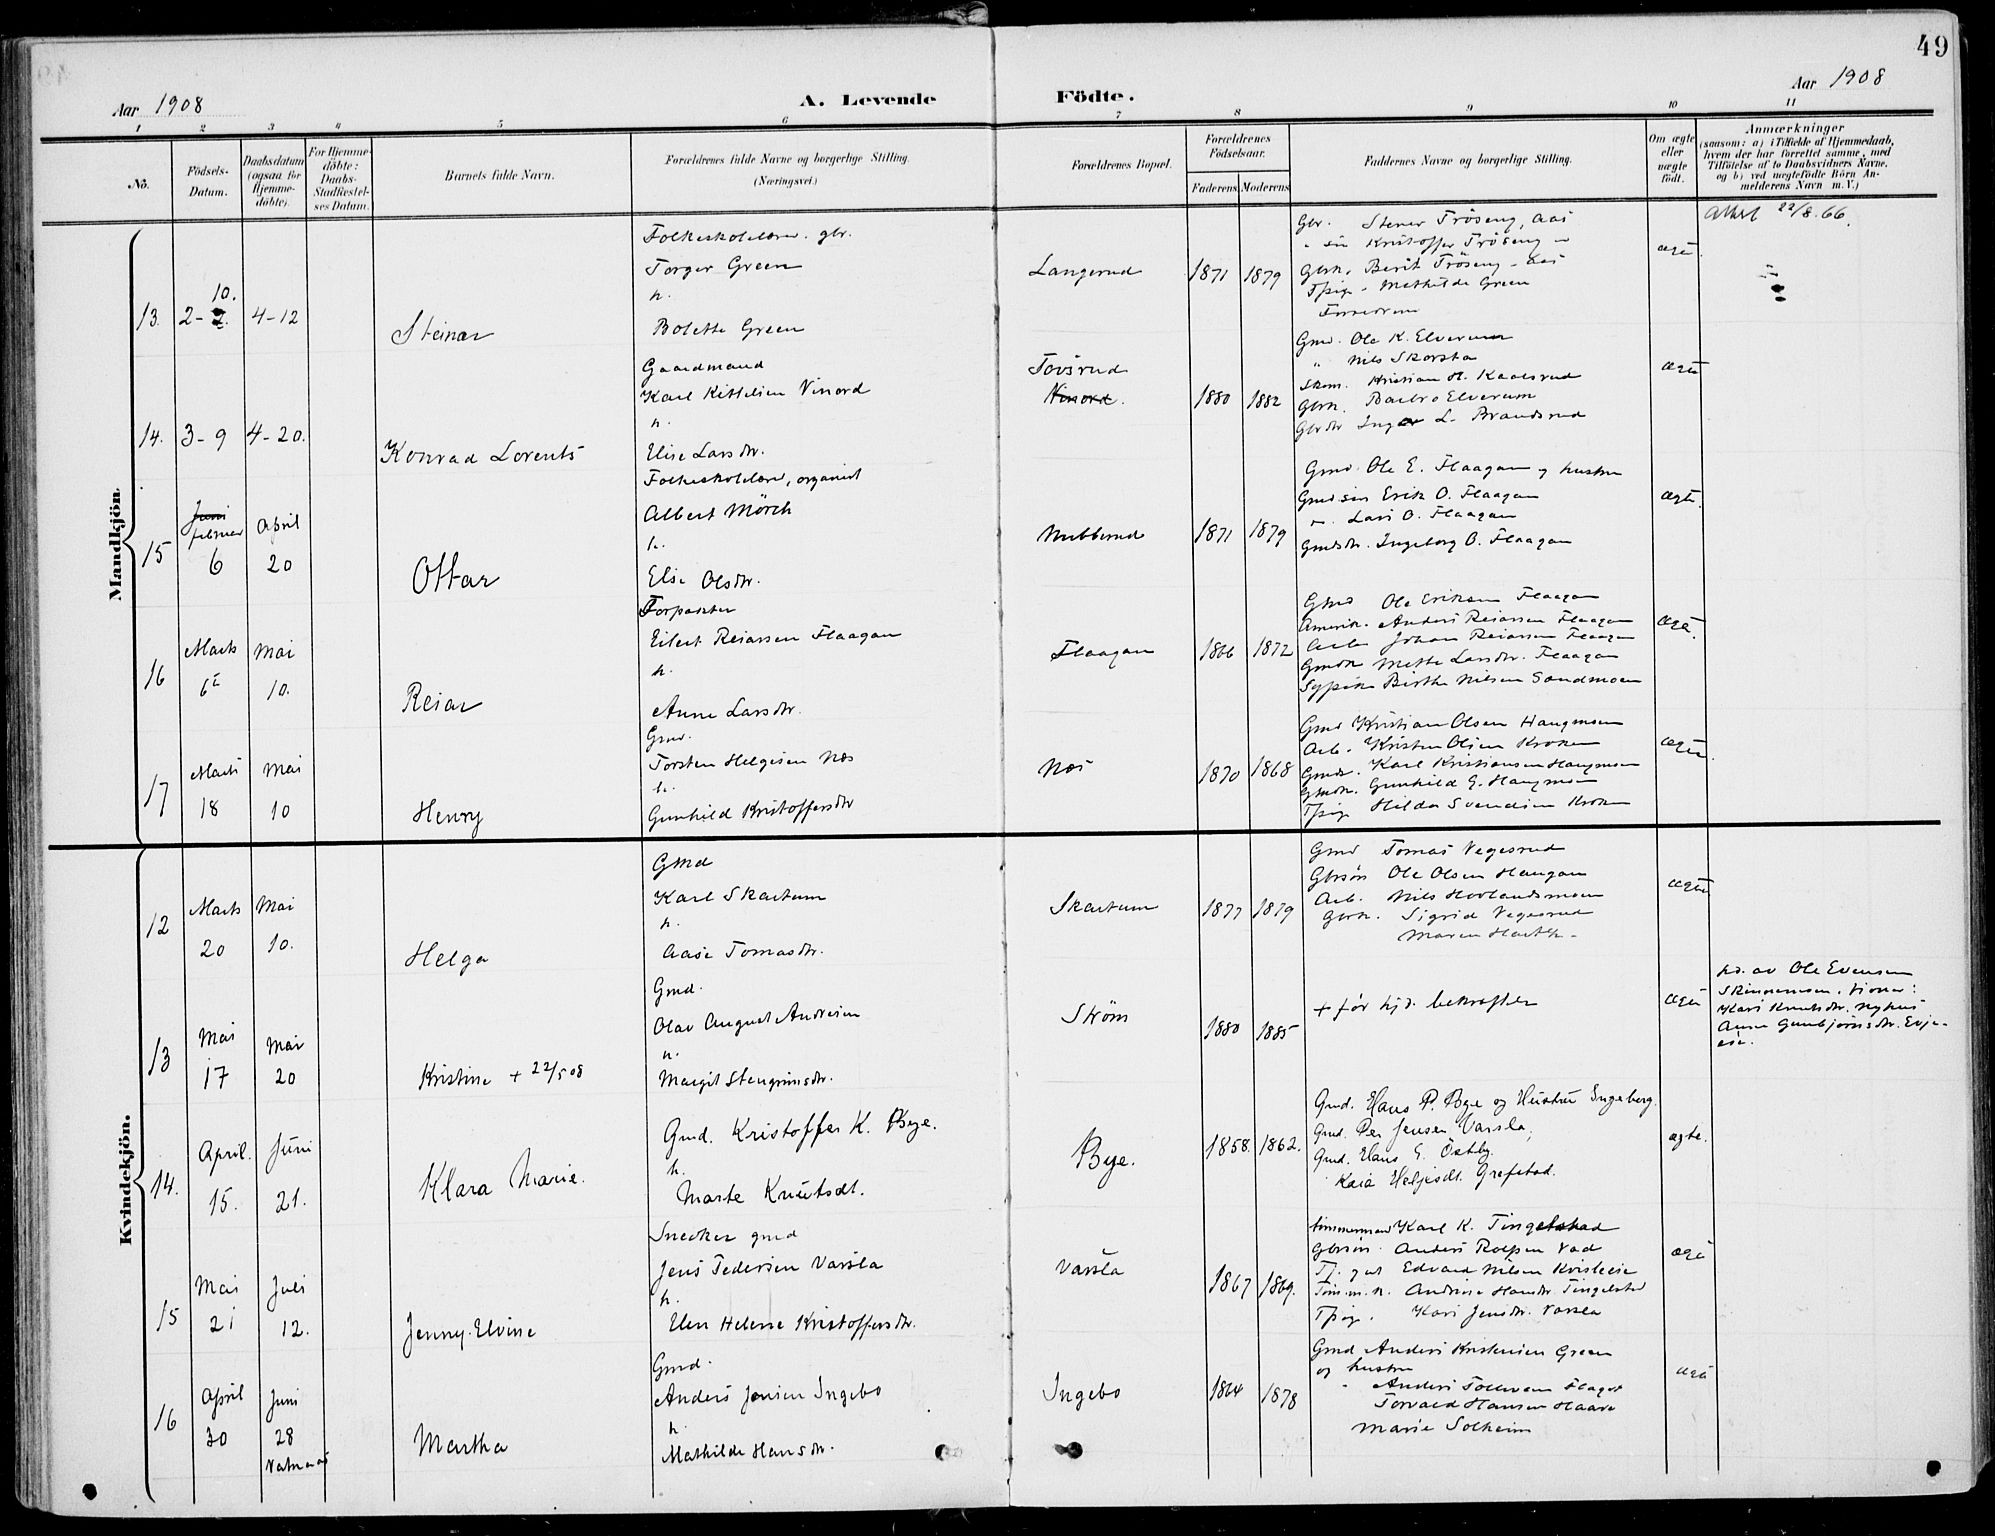 49
Aar 1908
A. Levende
Födte.
Aar 1908
1 2 3 4 5 6 7 8 9 10 11
No.
Födsels-
Datum.
Daabsdatum
(ogsaa for
Hjemme-
döbte).
For Hjemme-
döbte:
Daabs-
Stadfæstel-
ses Datum.
Barnets fulde Navn.
Forældrenes fulde Navne og borgerlige Stilling.
(Næringsvei.)
Forældrenes Bopæl.
Forældrenes
Födselsaar.
Faderens Moderens
Faddernes Navne og borgerlige Stilling.
Om ægte
eller
uægte
födt.
Anmærkninger
(saasom: a) i Tilfælde af Hjemmedaab,
hvem der har forrettet samme, med
Tilföielse af to Daabsvidners Navne,
og b) ved uægtefödte Börn An-
melderens Navn m. V.)
Mandkjön.
13. 2- 10. 4-12
Steinar
Folkeskolelærer. gbr.
Torger Green
h.
Bolette Green
Langerud
1871 1879
Gbr. Stener Tröseng, Aas
Kristoffer Tröseng
Gbrk. Berit Tröseng - Aas
Tpige - Mathilde Green
ægte
Attest 22/8. 66.
14. 3-9 4-20.
Konrad Lorents
Gaardmand
Karl Kittilsen Vinord
h.
Elise Larsdtr.
Tovsrud
Vinord.
1880 1882
Gmd. Ole K. Elverum
" Nils Skarsta
Skom. Kristian H. Kaalsrud
Gbrk. Barbro Elverum
Gbrdtr Inger L. Brandsrud
ægte
15 Juni februar 6 April 20
Ottar
Folkeskolelærer, organist
Albert Mörch
h.
Elise Olsdtr.
Nubberud
1871 1879
Gmd. Ole E. Flaagan og hustru
Gmdsön Erik O. Flaagan
" Lars O. Flaagan
Gmdsdtr. Ingeborg O. Flaagan
ægte.
16 Marts 6te Mai 10.
Reiar
Forpakter
Eilert Reiarsen Flaagan
h.
Anne Larsdtr.
Flaagan
1866 1872
Gmd Ole Eriksen Flaagan
Amerik. Anders Reiarsen Flaagan
Arb. Johan Reiarsen Flaagan
Gmdk Mette Larsdtr. Flaagan
Sypike Birthe Nilsen Sandmoen
ægte.
17 Marts 18 Mai 10
Henry
Gmd.
Torsten Helgesen Næs
h.
Gunhild Kristoffersdtr
Næs
1870 1868
Gmd Kristian Olsen Haugmoen
Arb. Kristen Olsen Kroken
Gmds. Karl Kristiansen Haugmoen
Gmdk. Gunhild G. Haugmoen
Tpige Hilda Svendsen Kroken
ægte
Kvindekjön.
12 Marts 20 Mai 10.
Helga
Gmd
Karl Skartum
h.
Aase Tomasdtr.
Skartum
1877 1879
Gmd Tomas Vegesrud
Gbrsön Ole Olsen Haugan
Arb. Nils Hovlandsmoen
Gbrk. Sigrid Vegesrud
Maren
ægte
13 Mai 17 Mai 20
Kristine + 22/5 08
Gmd.
Olav August Andresen
h.
Margit Stengrimsdtr.
Ström
1880 1885
+ før hjd. bekræftelse
ægte
hd. av Ole Evensen
Skinnemoen. Vidner:
Kari Knutsdtr. Nyhus
Anne Gunbjörnsdtr. Evje-
eie.
14. April. 15. Juni 21.
Klara Marie.
Gmd. Kristoffer K. Bye.
h.
Marte Knutsdt.
Bye.
1858 1862.
Gmd. Hans P. Bye og Hustru Ingeborg.
Gmd. Per Jensen Varsla,
Gmd. Hans G. Östby.
Kaia Helgesdt. Grefstad.
ægte.
15 Mai 21 Juli 12.
Jenny Elvine
Snedker gmd
Jens Pedersen Varsla
h.
Elen Helene Kristoffersdtr.
Varsla
1867 1869.
Timmermand Karl K. Tingelstad
Gbrsön. Anders Rolfsen Vad
Tj. gut Edvard Nilsen Kvisleeie
Tömm. k. Andrine Hansdtr. Tingelstad
Tpige. Kari Jensdtr. Varsla
ægte
16 April 30 Juni 28
Vatnaas
Martha
Gmd.
Anders Jensen Ingebo
h.
Mathilde Hansdtr.
Ingebo
1864 1878
Gmd Anders Kristensen Green
og hustru
" Anders Tollevsen Flagst
Torvald Hansen Haave
Marie Solheim
ægte